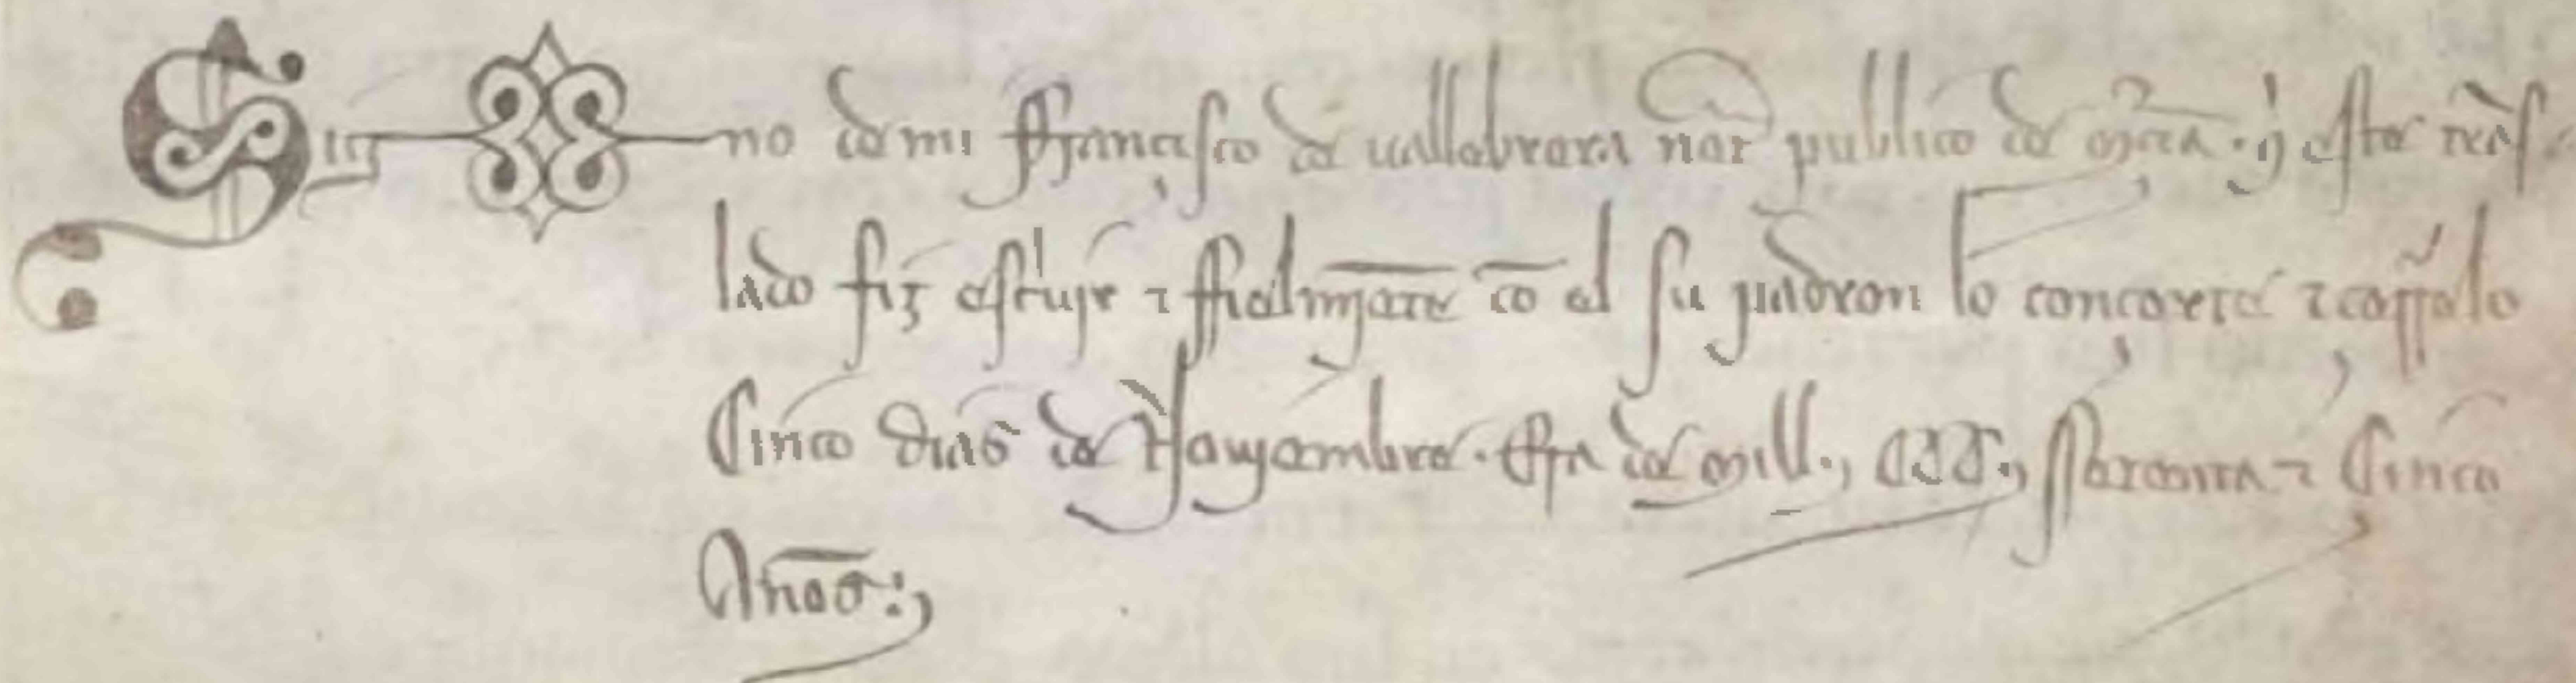 Sig no de mi ffrancisco de vallebrera not publico de Mora · q este tras
lado fiz escriujr ⁊ ffielmjente cō el su padron lo concerte ⁊
Cinco dias de Nouyembre · Era de mill ., CCC ., sseteenta ⁊ Cinco
Anños :,